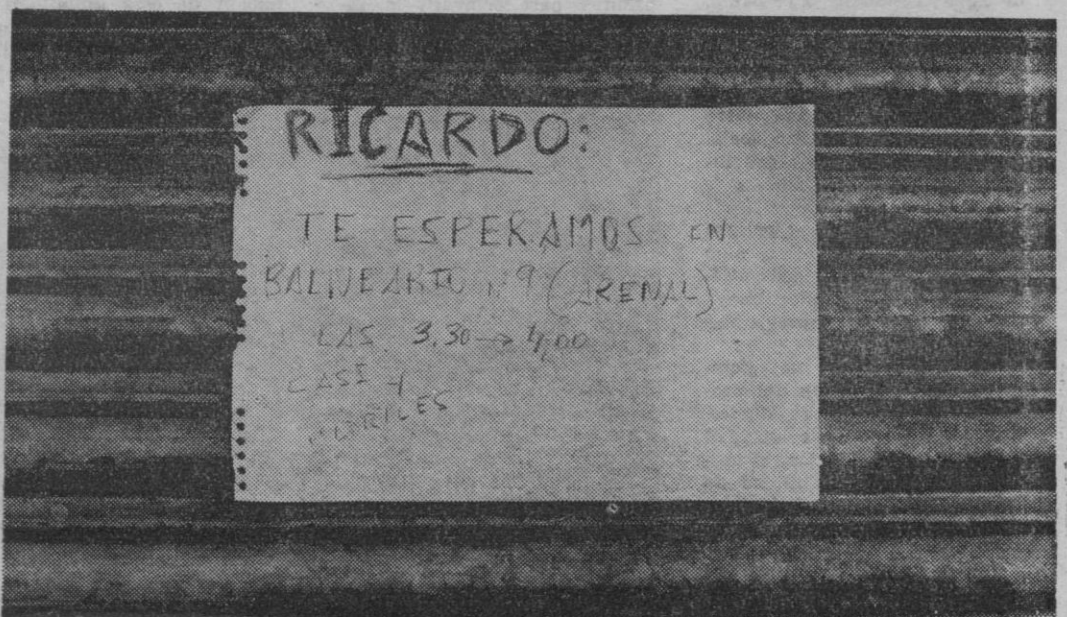 RICARDO:
TE ESPERAMOS EN
BALNEARIO Nº 9 (ARENAL)
LAS 3.30 → 4,00
CASI Y